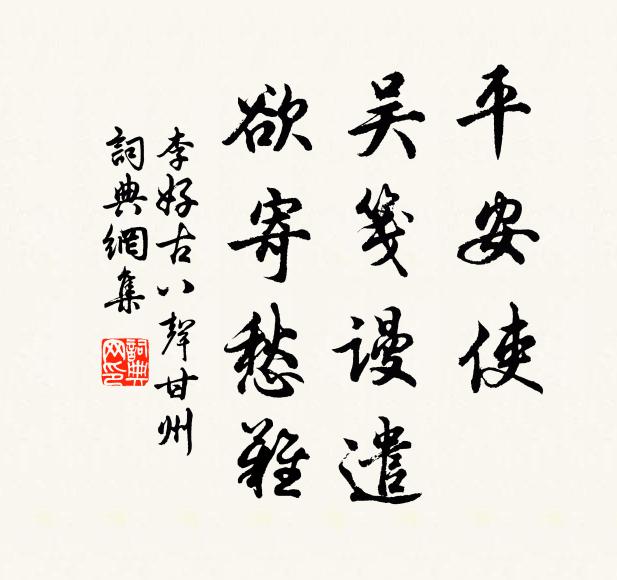 平安使
吴箋謾遣
欲寄愁難
李好古八聲甘州
詞典網集
詞典網印